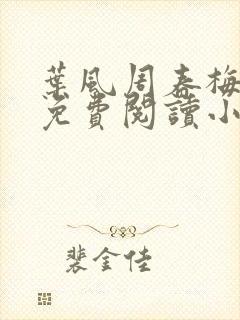 葉風周春梅
免費閱讀小
裴金佳